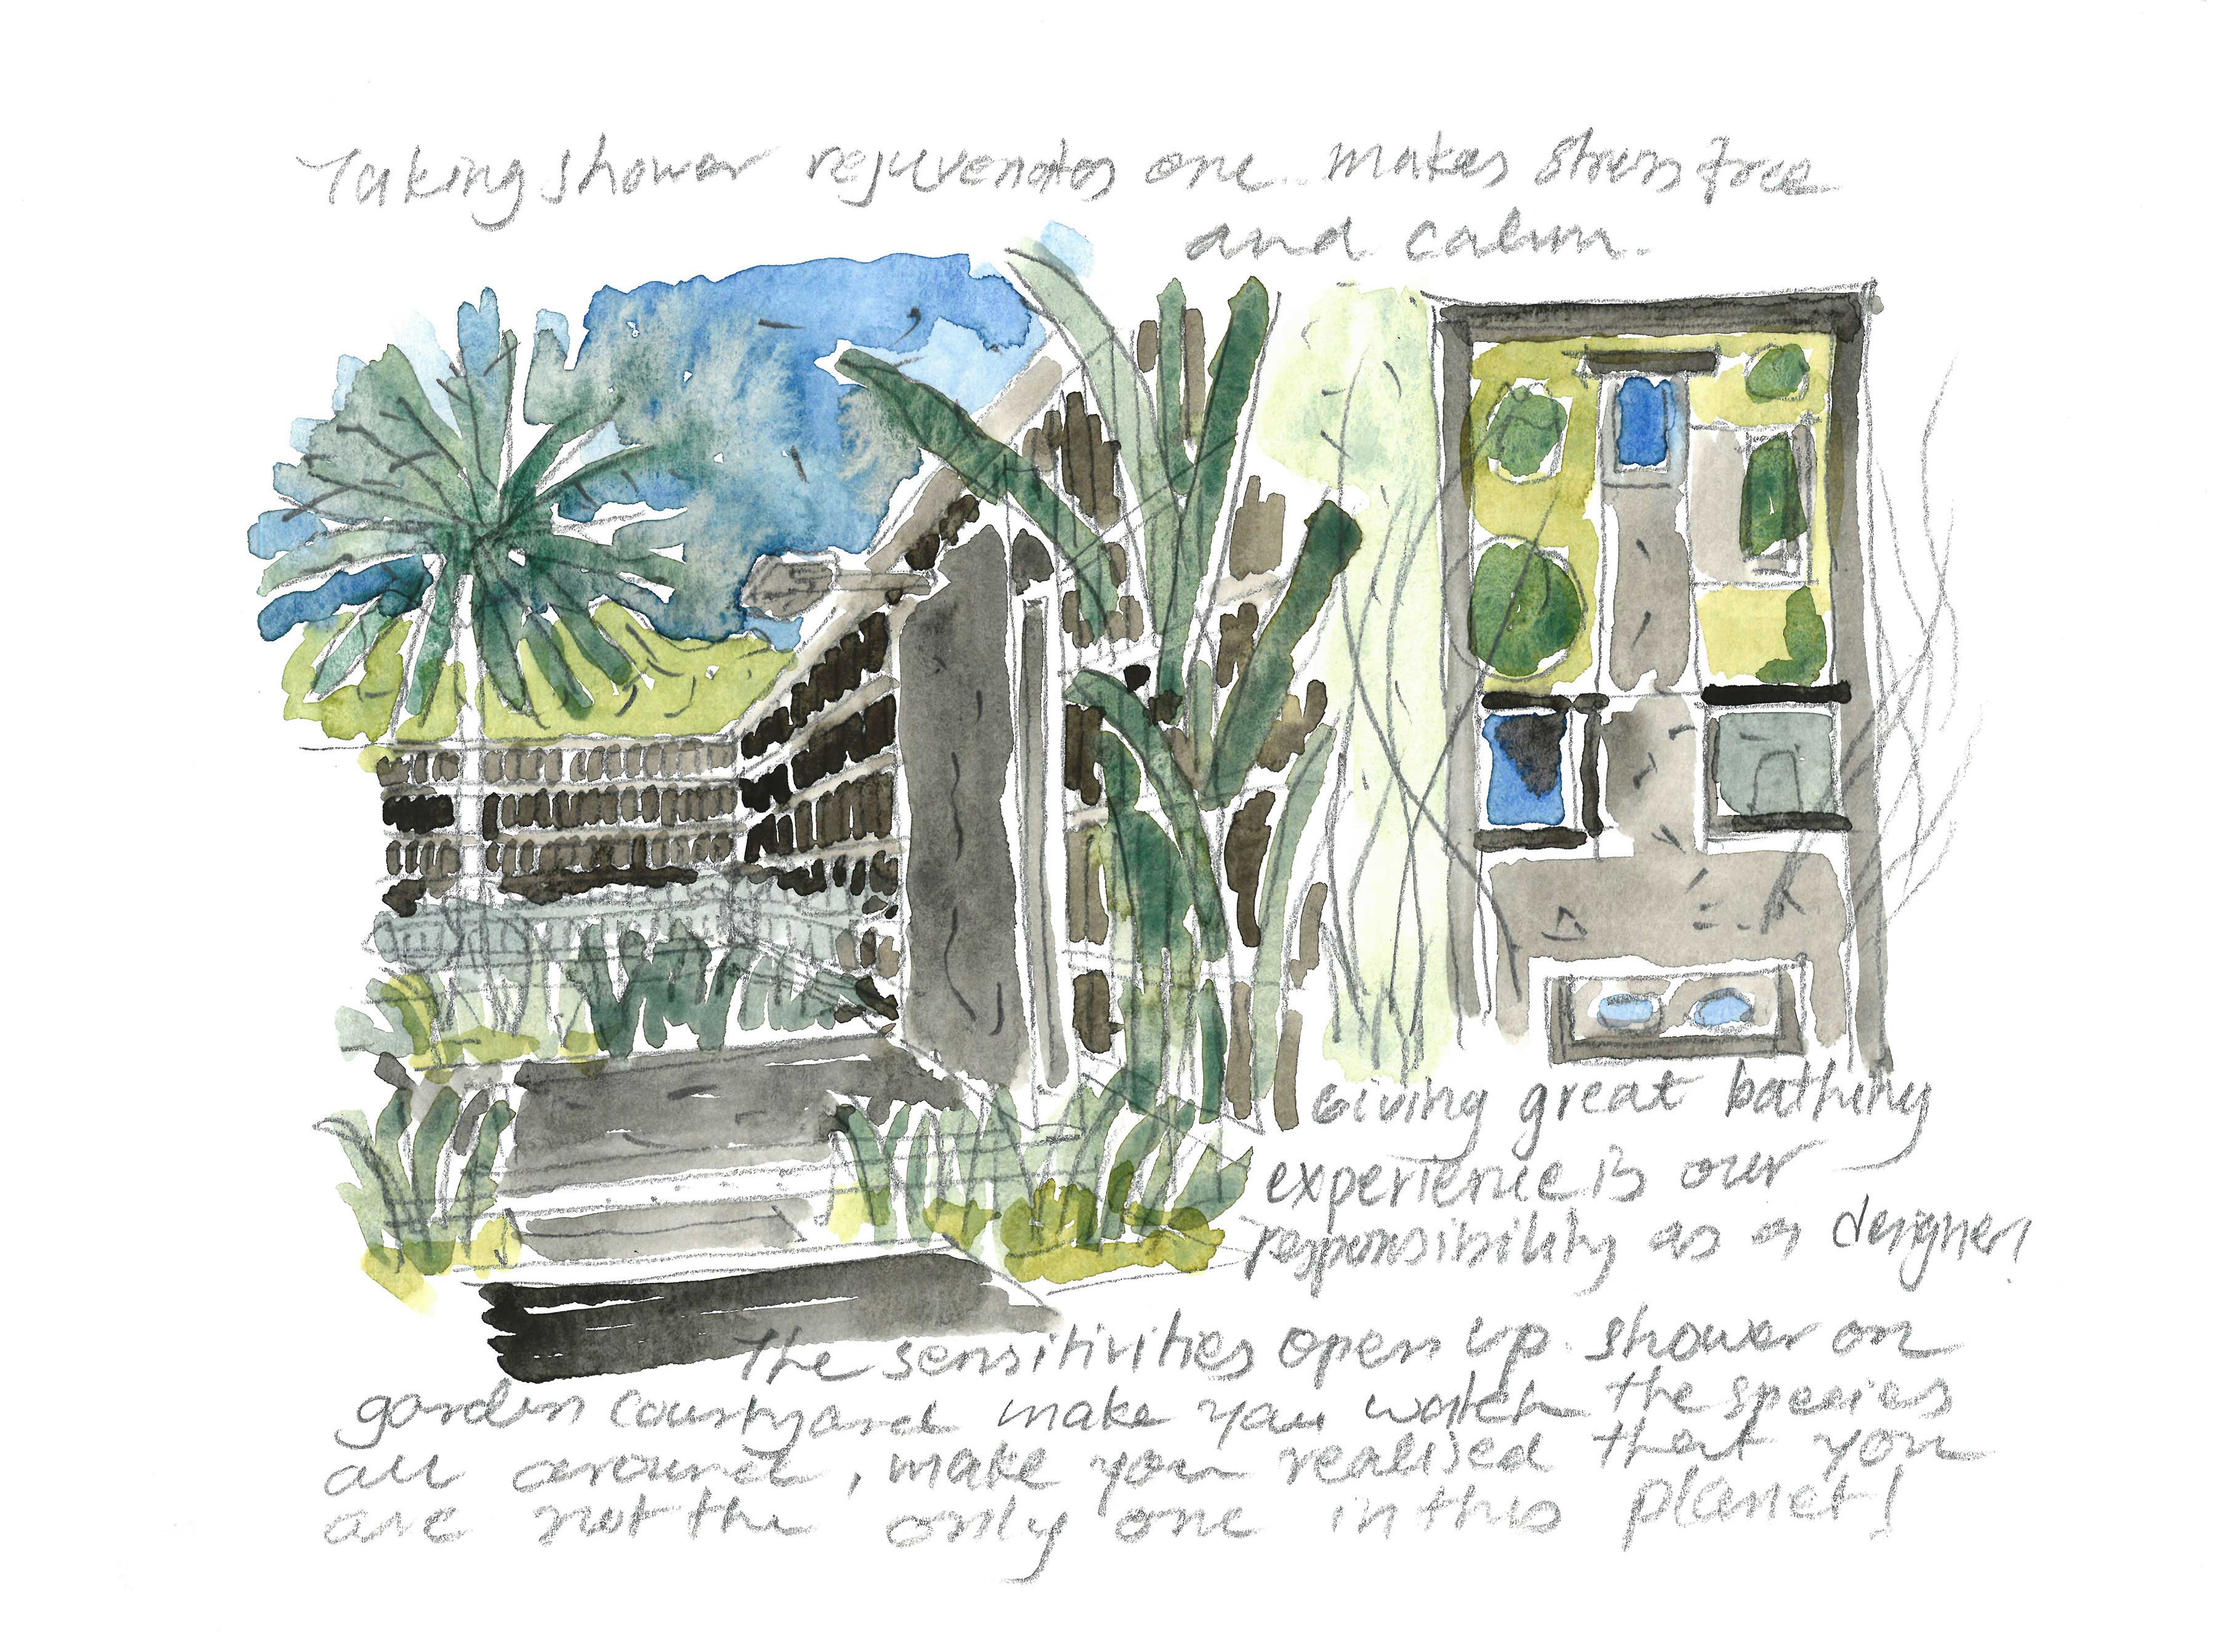 Taking shower rejuvenates one. makes stress free
and calm.
Giving great bathing
experience is our
responsibility as a designer!
The sensitivities open up. shower on
garden courtyard make you watch the species
all around, make you realised that you
are not the only one in this planet!